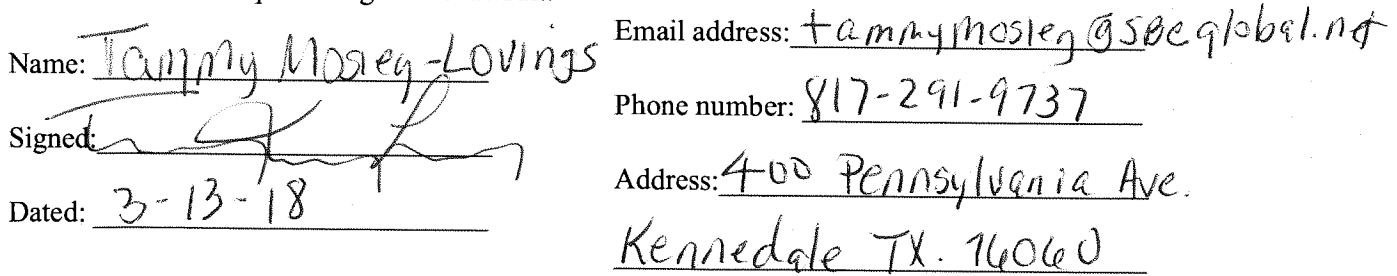 Name: Tammy Mosley-Lovings
Signed:
Dated: 3-13-18
Email address: tammymosley@sbcglobal.net
Phone number: 817-291-9737
Address: 400 Pennsylvania Ave.
Kennedale TX. 76060